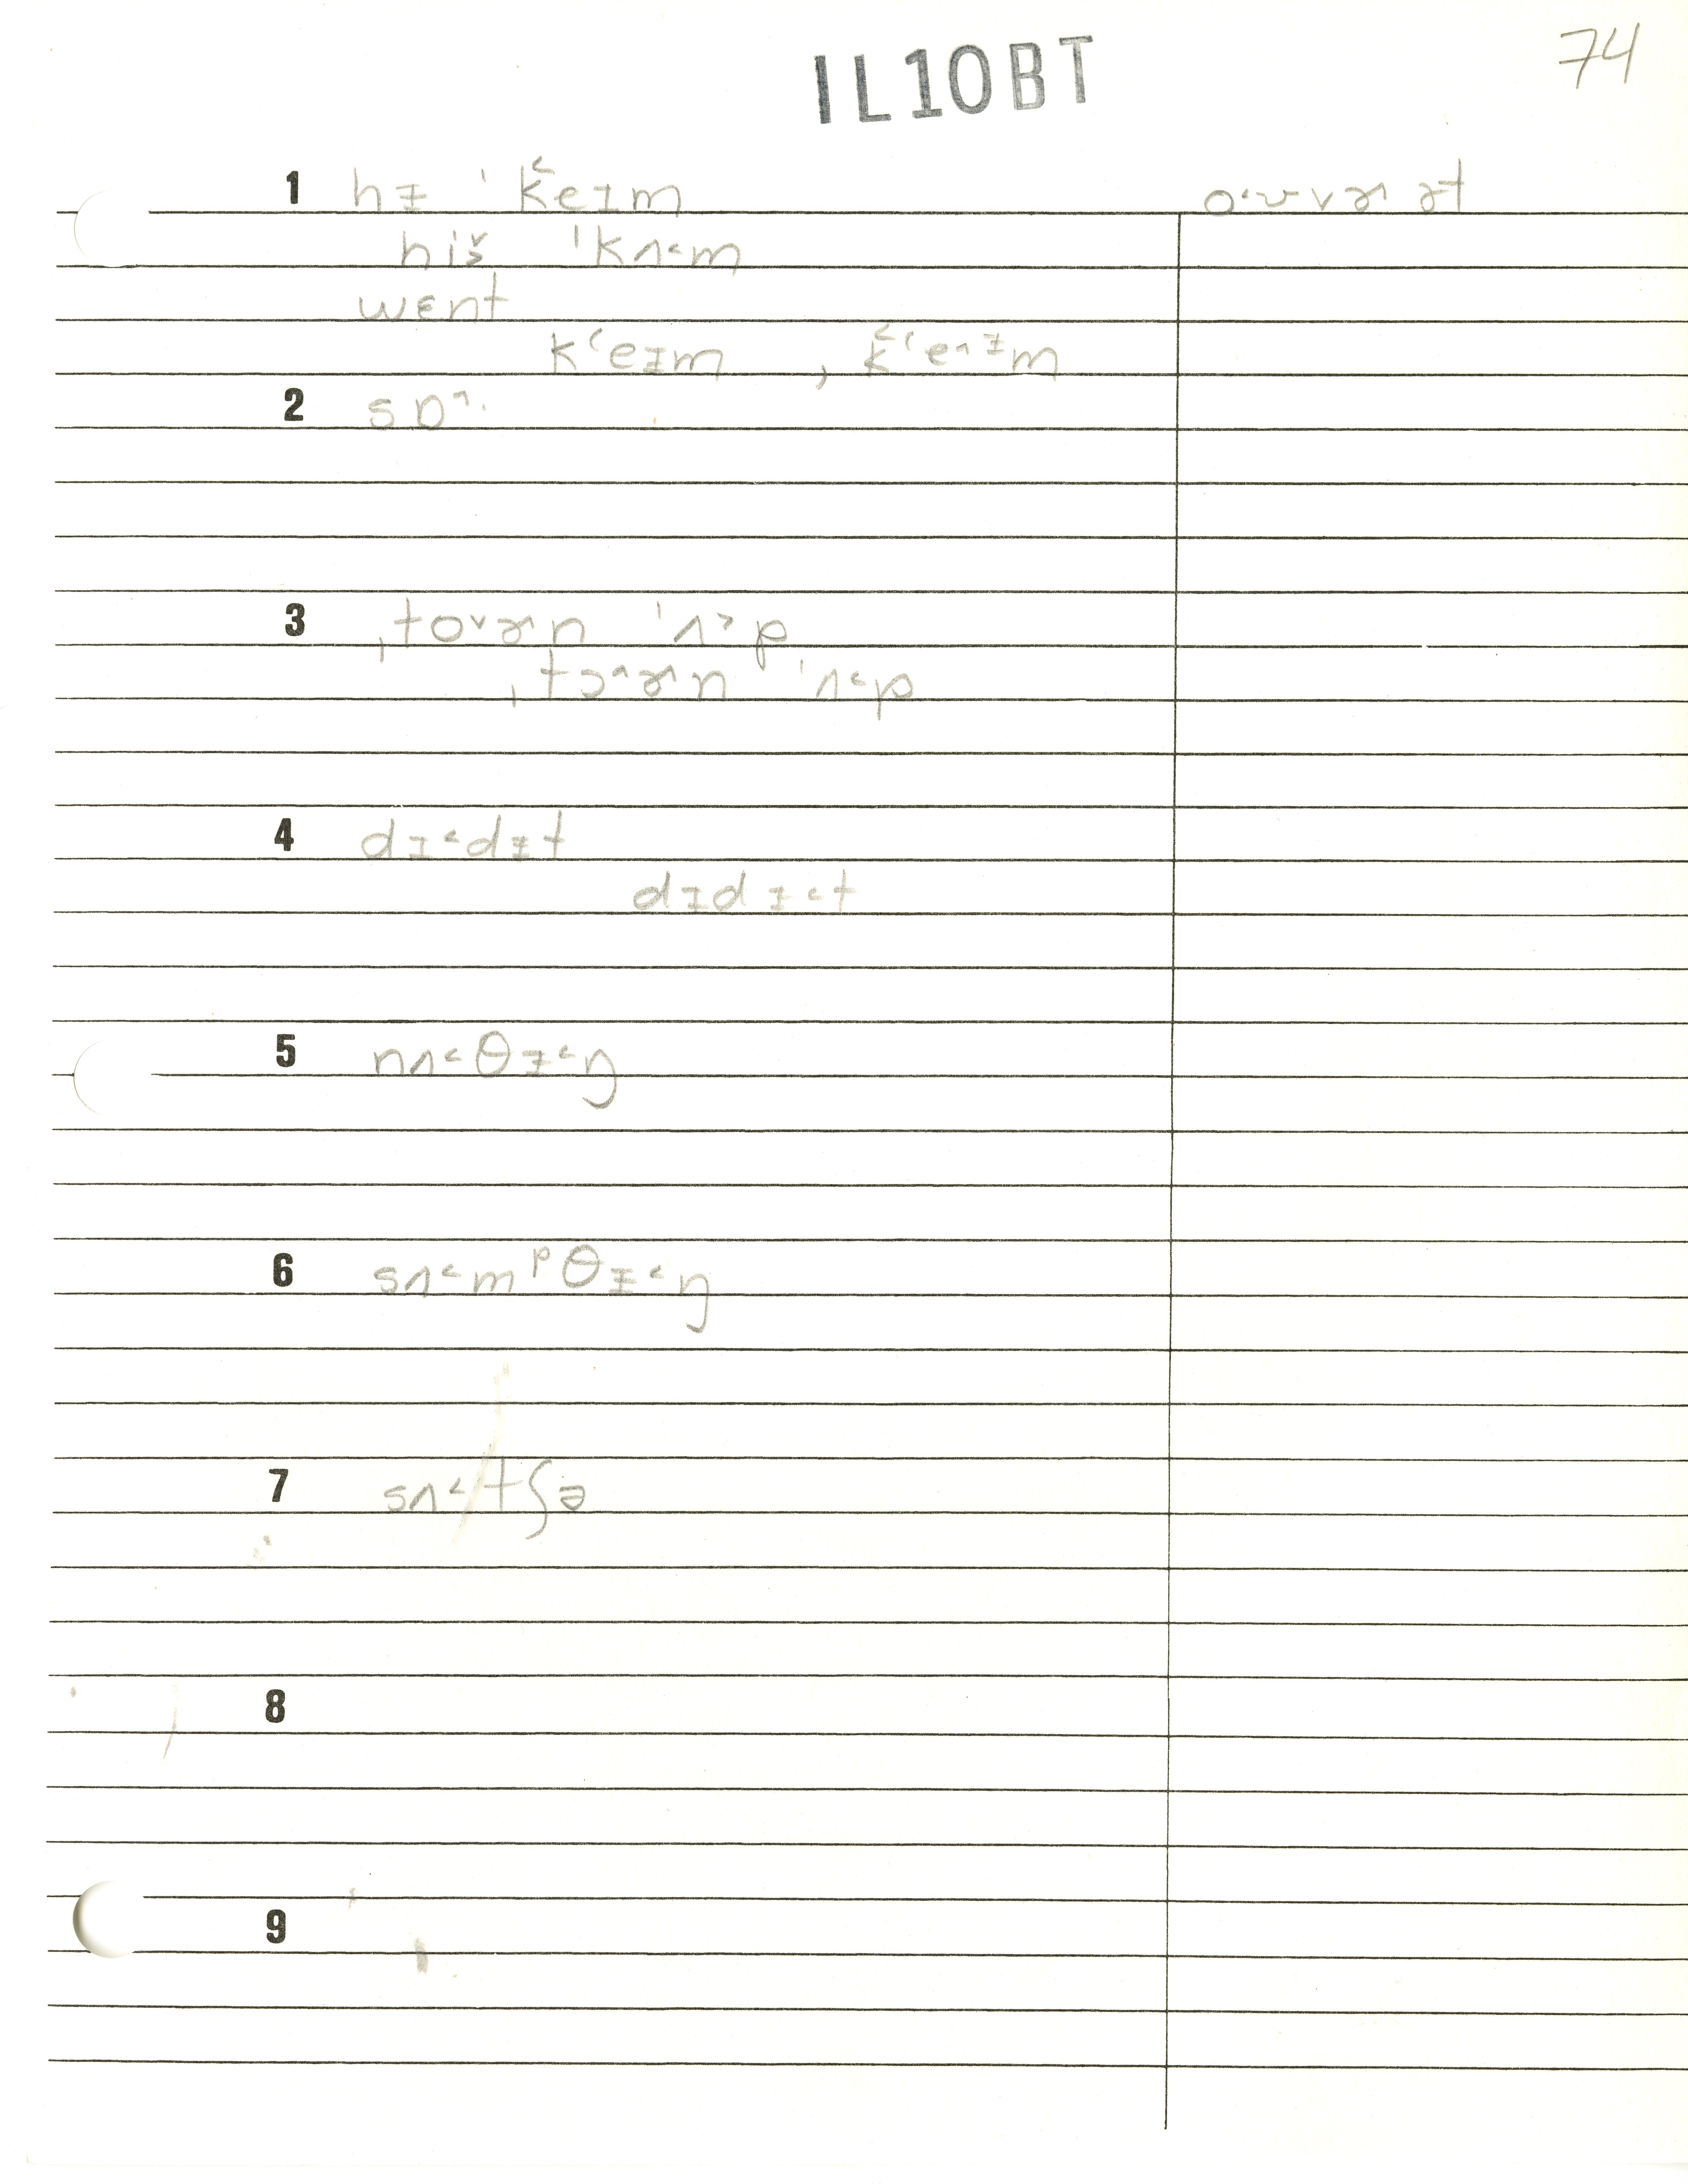 IL10BT
74
1 hɪ ˈk̆eɪm
hiš ˈkʌ˂m
wɛnt
k˓eɪm , k̆˓e˄ɪm
2 sɒ˄·
3 ˌto˅ɚ˄n ˈʌ˃p
ˌtɔ˄ɚ˄n ˈʌ˂p
4 dɪ˂dɪt
dɪdɪ˂t
5 nʌ˂θɪ˂ŋ
6 sʌ˂mᵖθɪ˂ŋ
7 sʌ˂tʃə
8
9